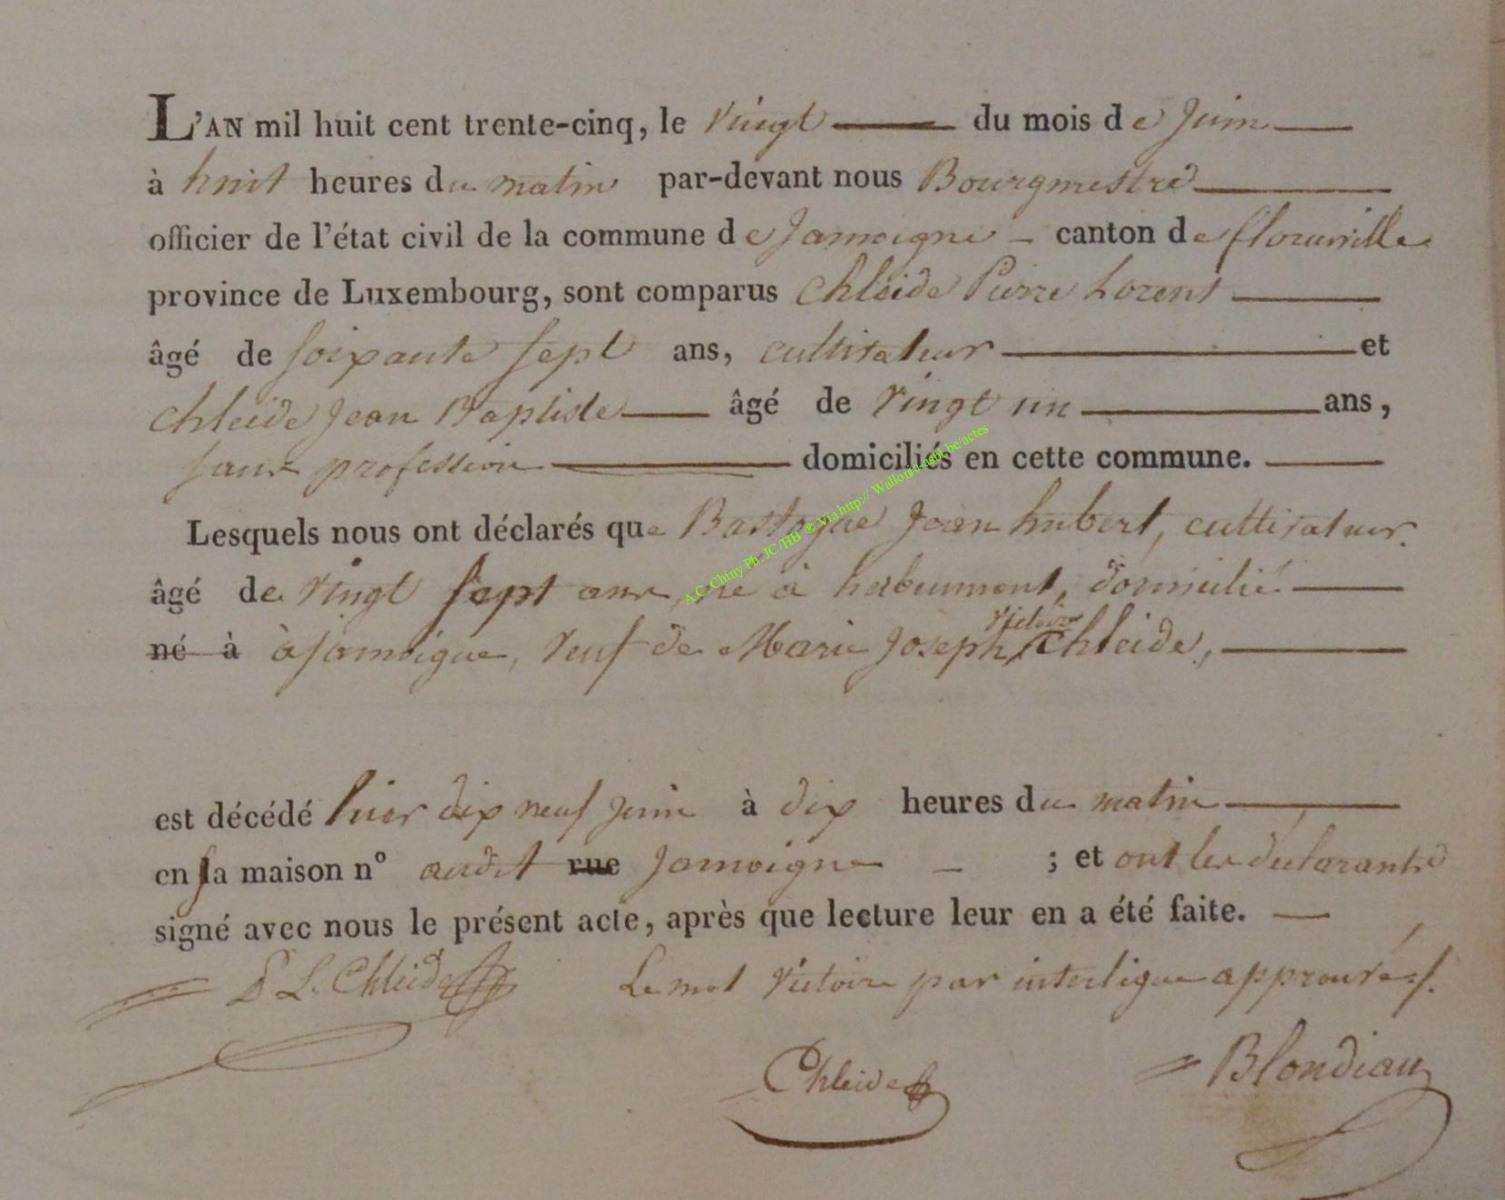 L'AN mil huit cent trente-cinq, le vingt du mois de Juin
à huit heures du matin par-devant nous Bourgmestre
officier de l'état civil de la commune de Jamoigne canton de florenville
province de Luxembourg, sont comparus Chleide Pierre Lorent
âgé de soixante sept ans, cultivateur et
Chleide Jean Baptiste âgé de vingt un ans,
sans profession domiciliés en cette commune.
Lesquels nous ont déclarés que Bastogne Jean hubert, cultivateur.
âgé de vingt sept ans, né à herbeumont, domicilié
victoire
né à à jamoigne, veuf de Marie Joseph Chleide,
est décédé hier dix neuf juin à dix heures du matin
en sa maison n° audit rue Jamoigne ; et ont les déclarants
signé avec nous le présent acte, après que lecture leur en a été faite.
P L Chleide Le mot victoire par interligne approuvé
Chleide Blondiau
A.C. Chiny Ph. JC /HB © Via http:// Wallonia-asbl.be/actes